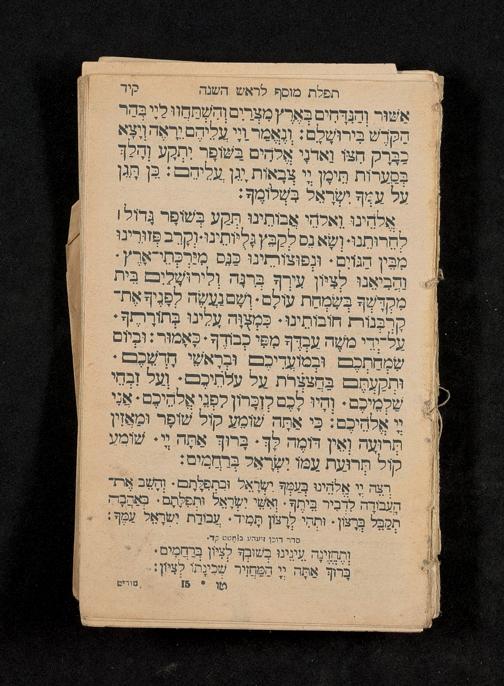 תפלת מוסף לראש השנה קיד
אַשּׁוּר וְהַנִּדָּחִים בְּאֶרֶץ מִצְרָיִם וְהִשְׁתַּחֲווּ לַיְיָ בְּהַר
הַקֹּדֶשׁ בִּירוּשָׁלָיִם: וְנֶאֱמַר וַיְיָ עֲלֵיהֶם יֵרָאֶה וְיָצָא
כַבָּרָק חִצּוֹ וַאדֹנָי אֱלֹהִים בַּשּׁוֹפָר יִתְקָע וְהָלַךְ
בְּסַעֲרוֹת תֵּימָן יְיָ צְבָאוֹת יָגֵן עֲלֵיהֶם: כֵּן תָּגֵן
עַל עַמְּךָ יִשְׂרָאֵל בִּשְׁלוֹמֶךָ:
אֱלֹהֵינוּ וֵאלֹהֵי אֲבוֹתֵינוּ תְּקַע בְּשׁוֹפָר גָּדוֹל ׀
לְחֵרוּתֵנוּ· וְשָׂא נֵס לְקַבֵּץ גָּלֻיּוֹתֵינוּ· וְקָרֵב פְּזוּרֵינוּ
מִבֵּין הַגּוֹיִם· וּנְפוּצוֹתֵינוּ כַּנֵּס מִיַּרְכְּתֵי־אָרֶץ·
וַהֲבִיאֵנוּ לְצִיּוֹן עִירְךָ בְּרִנָּה וְלִירוּשָׁלַיִם בֵּית
מִקְדָּשְׁךָ בְּשִׂמְחַת עוֹלָם· וְשָׁם נַעֲשֶׂה לְפָנֶיךָ אֶת־
קָרְבְּנוֹת חוֹבוֹתֵינוּ· כִּמְצֻוֶּה עָלֵינוּ בְּתוֹרָתֶךָ·
עַל־יְדֵי מֹשֶׁה עַבְדֶּךָ מִפִּי כְבוֹדֶךָ· כָּאָמוּר: וּבְיוֹם
שִׂמְחַתְכֶם וּבְמוֹעֲדֵיכֶם וּבְרָאשֵׁי חָדְשֵׁכֶם·
וּתְקַעְתֶּם בַּחֲצֹצְרֹת עַל עֹלֹתֵיכֶם· וְעַל זִבְחֵי
שַׁלְמֵיכֶם· וְהָיוּ לָכֶם לְזִכָּרוֹן לִפְנֵי אֱלֹהֵיכֶם· אֲנִי
יְיָ אֱלֹהֵיכֶם: כִּי אַתָּה שׁוֹמֵעַ קוֹל שׁוֹפָר וּמַאֲזִין
תְּרוּעָה וְאֵין דּוֹמֶה לָּךְ· בָּרוּךְ אַתָּה יְיָ· שׁוֹמֵעַ
קוֹל תְּרוּעַת עַמּוֹ יִשְׂרָאֵל בְּרַחֲמִים:
רְצֵה יְיָ אֱלֹהֵינוּ בְּעַמְּךָ יִשְׂרָאֵל וּבִתְפִלָּתָם· וְהָשֵׁב אֶת־
הָעֲבוֹדָה לִדְבִיר בֵּיתֶךָ· וְאִשֵּׁי יִשְׂרָאֵל וּתְפִלָּתָם· בְּאַהֲבָה
תְקַבֵּל בְּרָצוֹן· וּתְהִי לְרָצוֹן תָּמִיד· עֲבוֹדַת יִשְׂרָאֵל עַמֶּךָ:
סדר דוכן
וְתֶחֱזֶינָה עֵינֵינוּ בְּשׁוּבְךָ לְצִיּוֹן בְּרַחֲמִים·
בָּרוּךְ אַתָּה יְיָ הַמַּחֲזִיר שְׁכִינָתוֹ לְצִיּוֹן:
טו * 15 מודים